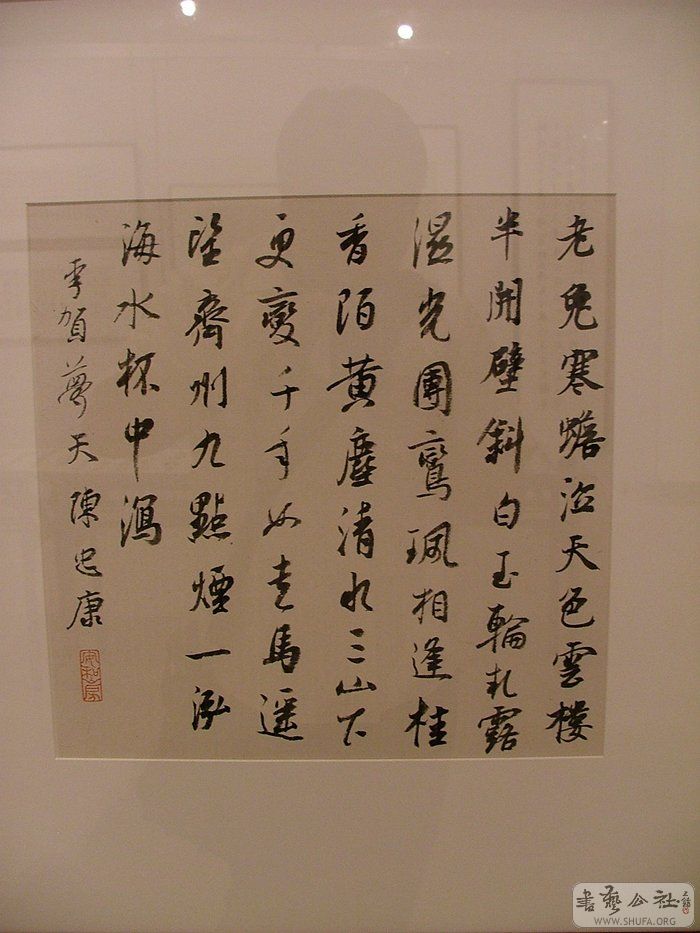 老兔寒蟾泣天色雲樓
半開壁斜白玉輪軋露
濕光團鸞珮相逢桂
香陌黃塵清水三山下
更變千年如走馬遥
望齊州九點煙一泓
海水杯中瀉
李賀夢天 陳忠康
書藝公社
WWW.SHUFA.ORG